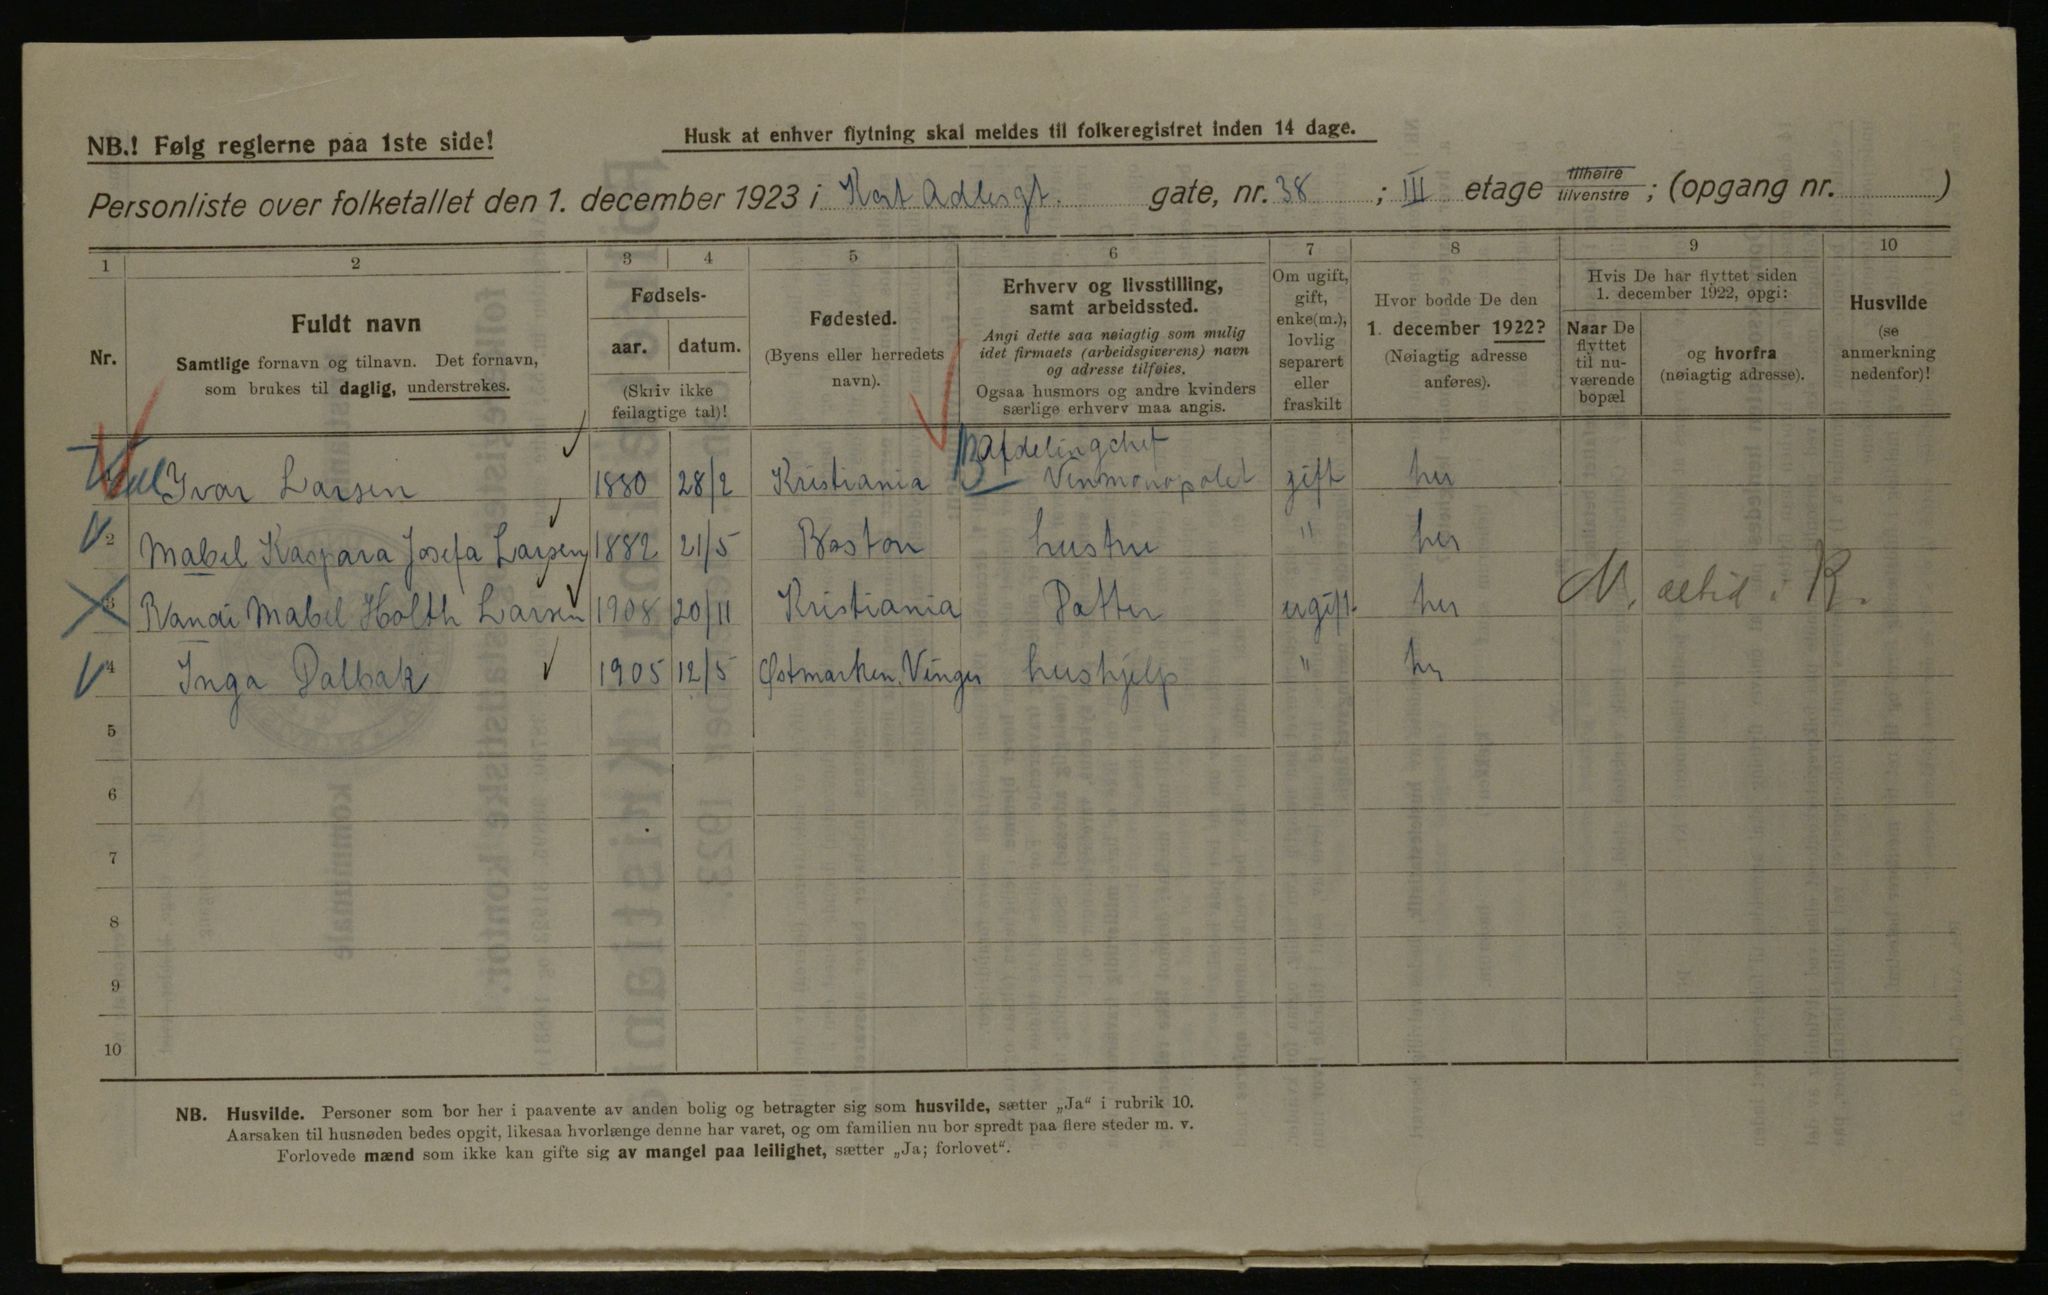 NB.! Følg reglerne paa 1ste side!
Husk at enhver flytning skal meldes til folkeregistret inden 14 dage.
Personliste over folketallet den 1. december 1923 i Kort Adlersgt. gate, nr. 38 ; III etage tilhøire tilvenstre ; (opgang nr. )
1 2 3 4 5 6 7 8 9 10
Nr.
Fuldt navn
Samtlige fornavn og tilnavn. Det fornavn,
som brukes til daglig, understrekes.
Fødsels-
aar. datum.
(Skriv ikke
feilagtige tal)!
Fødested.
(Byens eller herredets
navn).
Erhverv og livsstilling,
samt arbeidssted.
Angi dette saa nøiagtig som mulig
idet firmaets (arbeidsgiverens) navn
og adresse tilføies.
Ogsaa husmors og andre kvinders
særlige erhverv maa angis.
Om ugift,
gift,
enke(m.),
lovlig
separert
eller
fraskilt
Hvor bodde De den
1. december 1922?
(Nøiagtig adresse
anføres).
Hvis De har flyttet siden
1. december 1922, opgi:
Naar De
flyttet
til nu-
værende
bopæl
og hvorfra
(nøiagtig adresse).
Husvilde
(se
anmerkning
nedenfor)!
Afdelingchef
Ivar Larsen 1880 28/2 Kristiania Vinmonopolet gift her
2 Mabel Kaspara Josefa Larsen 1882 21/5 Boston hustru " her
3 Randi Mabel Holth Larsen 1908 20/11 Kristiania Datter ugift her N. altid i K.
4 Inga Dalbak 1905 12/5 Østmarken, Vinger hushjelp " her
5
6
7
8
9
10
NB. Husvilde. Personer som bor her i paavente av anden bolig og betragter sig som husvilde, sætter „Ja“ i rubrik 10.
Aarsaken til husnøden bedes opgit, likesaa hvorlænge denne har varet, og om familien nu bor spredt paa flere steder m. v.
Forlovede mænd som ikke kan gifte sig av mangel paa leilighet, sætter „Ja; forlovet“.